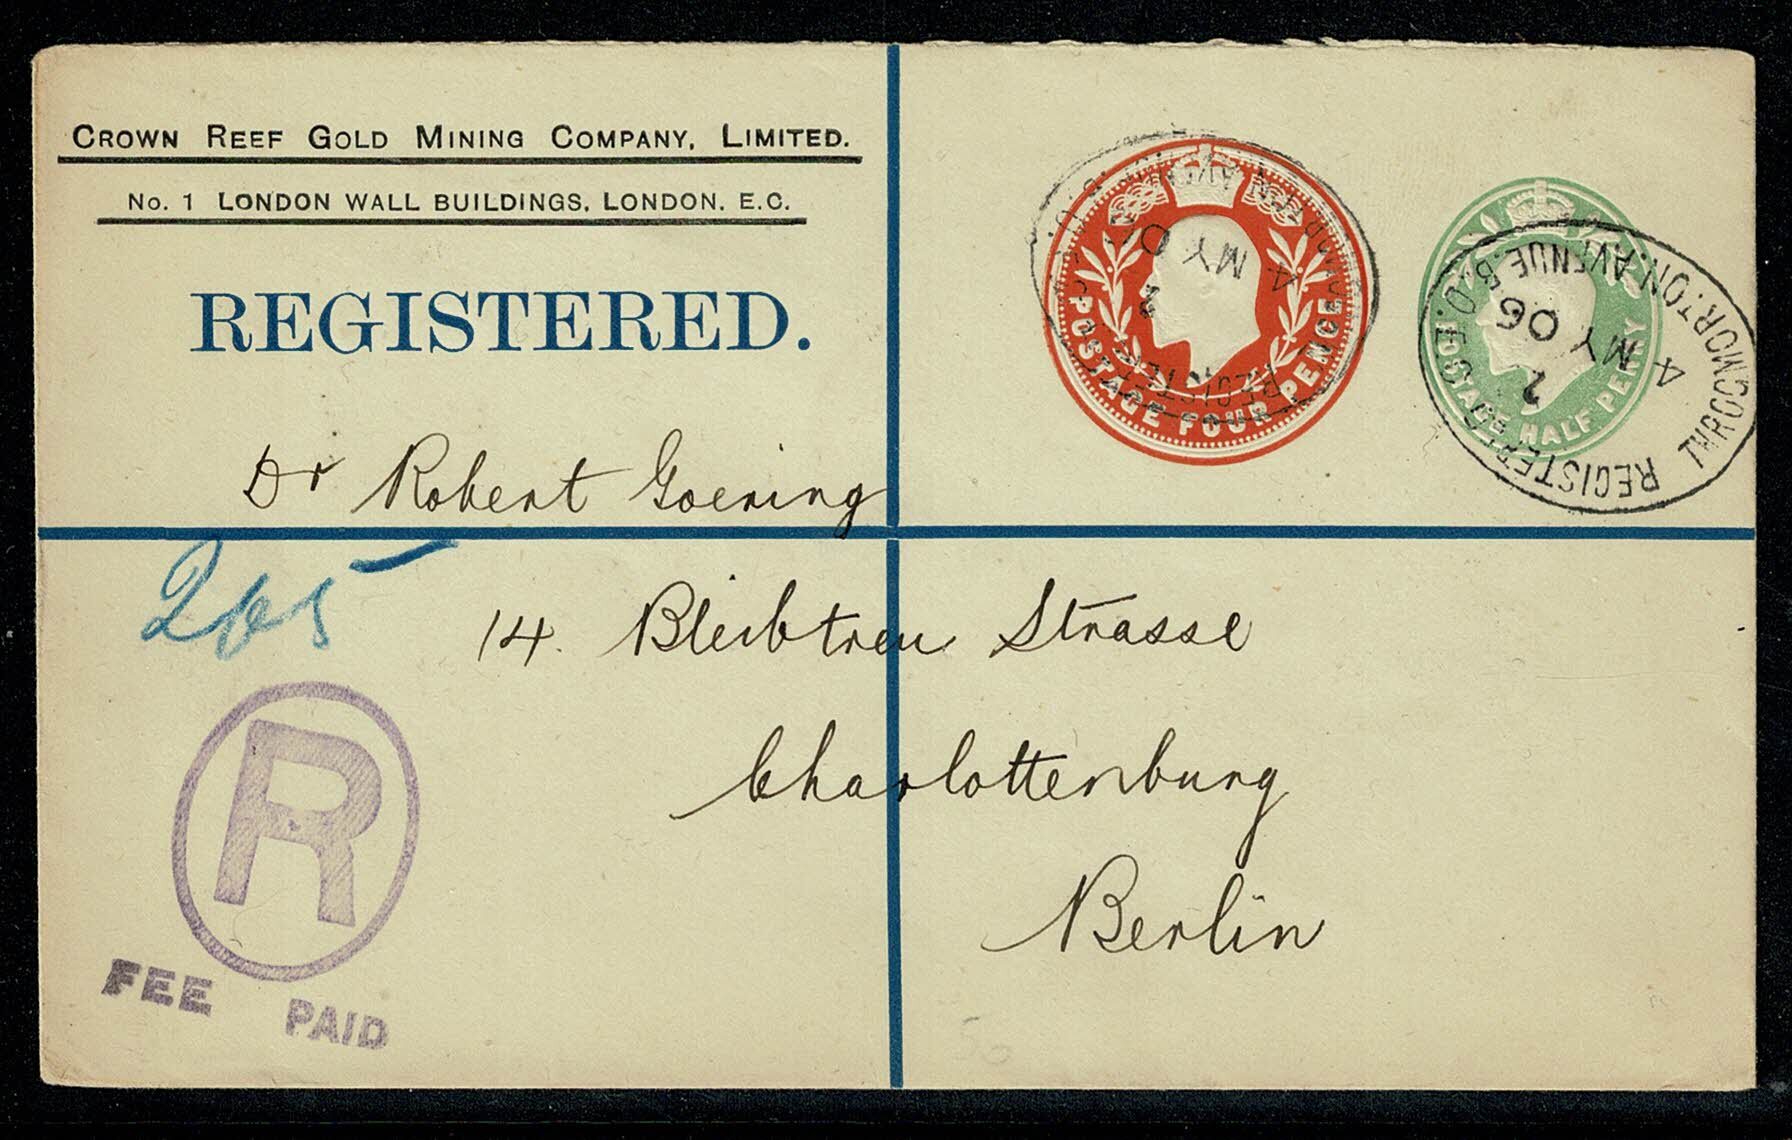 CROWN REEF GOLD MINING COMPANY, LIMITED.
No. 1 LONDON WALL BUILDINGS, LONDON. E.C.
REGISTERED.
POSTAGE FOUR PENCE
REGISTERED
4
MY 06
2
POSTAGE HALF PENNY
THROGMORTON.AVENUE.B.O.E.C.
REGISTERED
4
MY 06
2
Dr Robert Goering
265
14. Bleibtreu Strasse
Charlottenburg
Berlin
R
FEE PAID